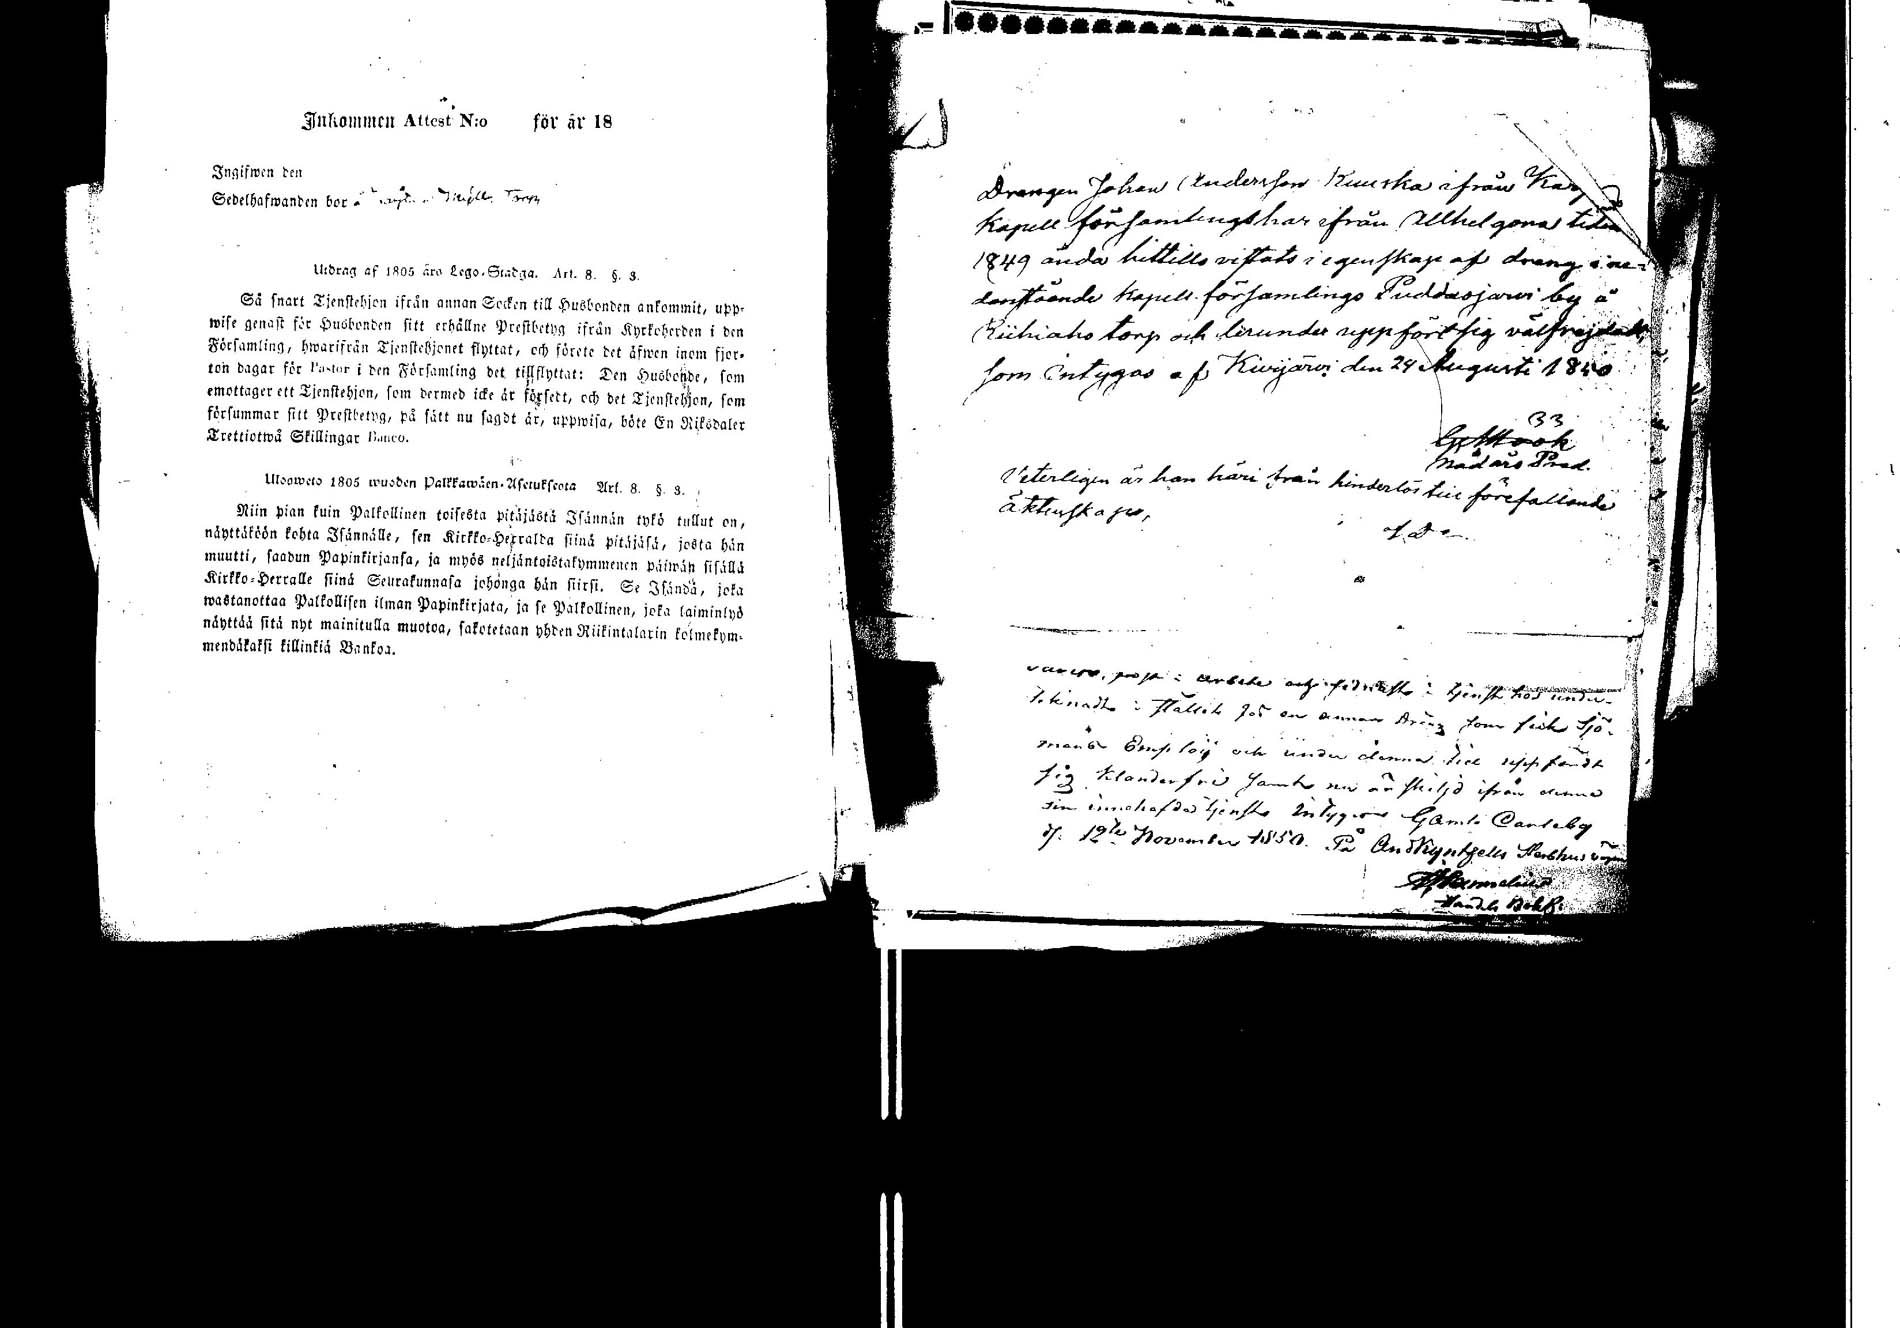 Inkommen Attest N:o för år 18
Ingifwen den
Sedelhafwanden bor å Torp
Utdrag af 1805 års Lego-Stadga. Art. 8. §. 3.
Så snart Tjenstehjon ifrån annan Socken till Husbonden ankommit, upp-
wise genast för Husbonden sitt erhållne Prestbetyg ifrån Kyrkoherden i den
Församling, hwarifrån Tjenstehjonet flyttat, och förete det äfwen inom fjor-
ton dagar för Pastor i den Församling det tillflyttat: Den Husbonde, som
emottager ett Tjenstehjon, som dermed icke är försedt, och det Tjenstehjon, som
försummar sitt Prestbetyg, på sätt nu sagdt är, uppwisa, böte En Riksdaler
Trettiotwå Skillingar Banco.
Ulosweto 1805 wuoden Palkkawäen-Asetuksesta Art. 8. §. 3.
Niin pian kuin Palkollinen toisesta pitäjästä Isännän tykö tullut on,
näyttäköön kohta Isännälle, sen Kirkko-Herralda siinä pitäjäsä, josta hän
muutti, saadun Papinkirjansa, ja myös neljäntoistakymmenen päiwän sisällä
Kirkko-Herralle siinä Seurakunnasa johonga hän siirsi. Se Isändä, joka
wastanottaa Palkollisen ilman Papinkirjata, ja se Palkollinen, joka laiminlyö
näyttää sitä nyt mainitulla muotoa, sakotetaan yhden Riikintalarin kolmekym-
mendäkaksi killinkiä Bankoa.
Drengen Johan Andersson Kuuska ifrån
Kapell församlings har ifrån Allhelgona tiden
1849 ända hittills vistats i egenskap af dreng i ne-
danstående Kapell församlings Puddasjärvi by å
Kiihiaho torp och derunder uppfört sig välfrejdat,
som intygas af Kivijärvi den 24 Augusti 1850
33
Nådårs Pred.
Veterligen är han häri från hinderlös till förefallande
äktenskaper,
arbete och i tjenst hos under-
teknade i stället för en annan dräng som fick Sjö-
mans Employ och under denna tid uppfördt
sig klanderfri samt nu är skiljd ifrån denna
sin innehafda tjenst intygar Gamla Carleby
d. 12te November 1850. På And Kyntzells Sterbhus vägnar
Handels Bokh.